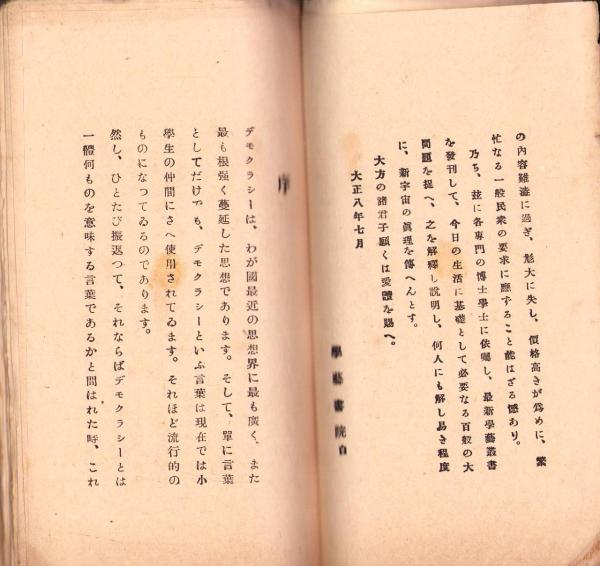 の內容難澁に過ぎ、尨大に失し、價格高きが爲めに、繁
忙なる一般民衆の要求に應ずること能はざる憾あり。
乃ち、玆に各專門の博士學士に依囑し、最新學藝叢書
を發刊して、今日の生活に基礎として必要なる百般の大
問題を捉へ、之を解釋し說明し、何人にも解し易き程度
に、新宇宙の眞理を傳へんとす。
大方の諸君子願くは愛讀を賜へ。
大正八年七月
學藝書院白
序
デモクラシーは、わが國最近の思想界に最も廣く、また
最も根强く蔓延した思想であります。そして、單に言葉
としてだけでも、デモクラシーといふ言葉は現在では小
學生の仲間にさへ使用されてゐます。それほど流行的の
ものになつてゐるのであります。
然し、ひとたび振返つて、それならばデモクラシーとは
一體何ものを意味する言葉であるかと問はれた時、これ